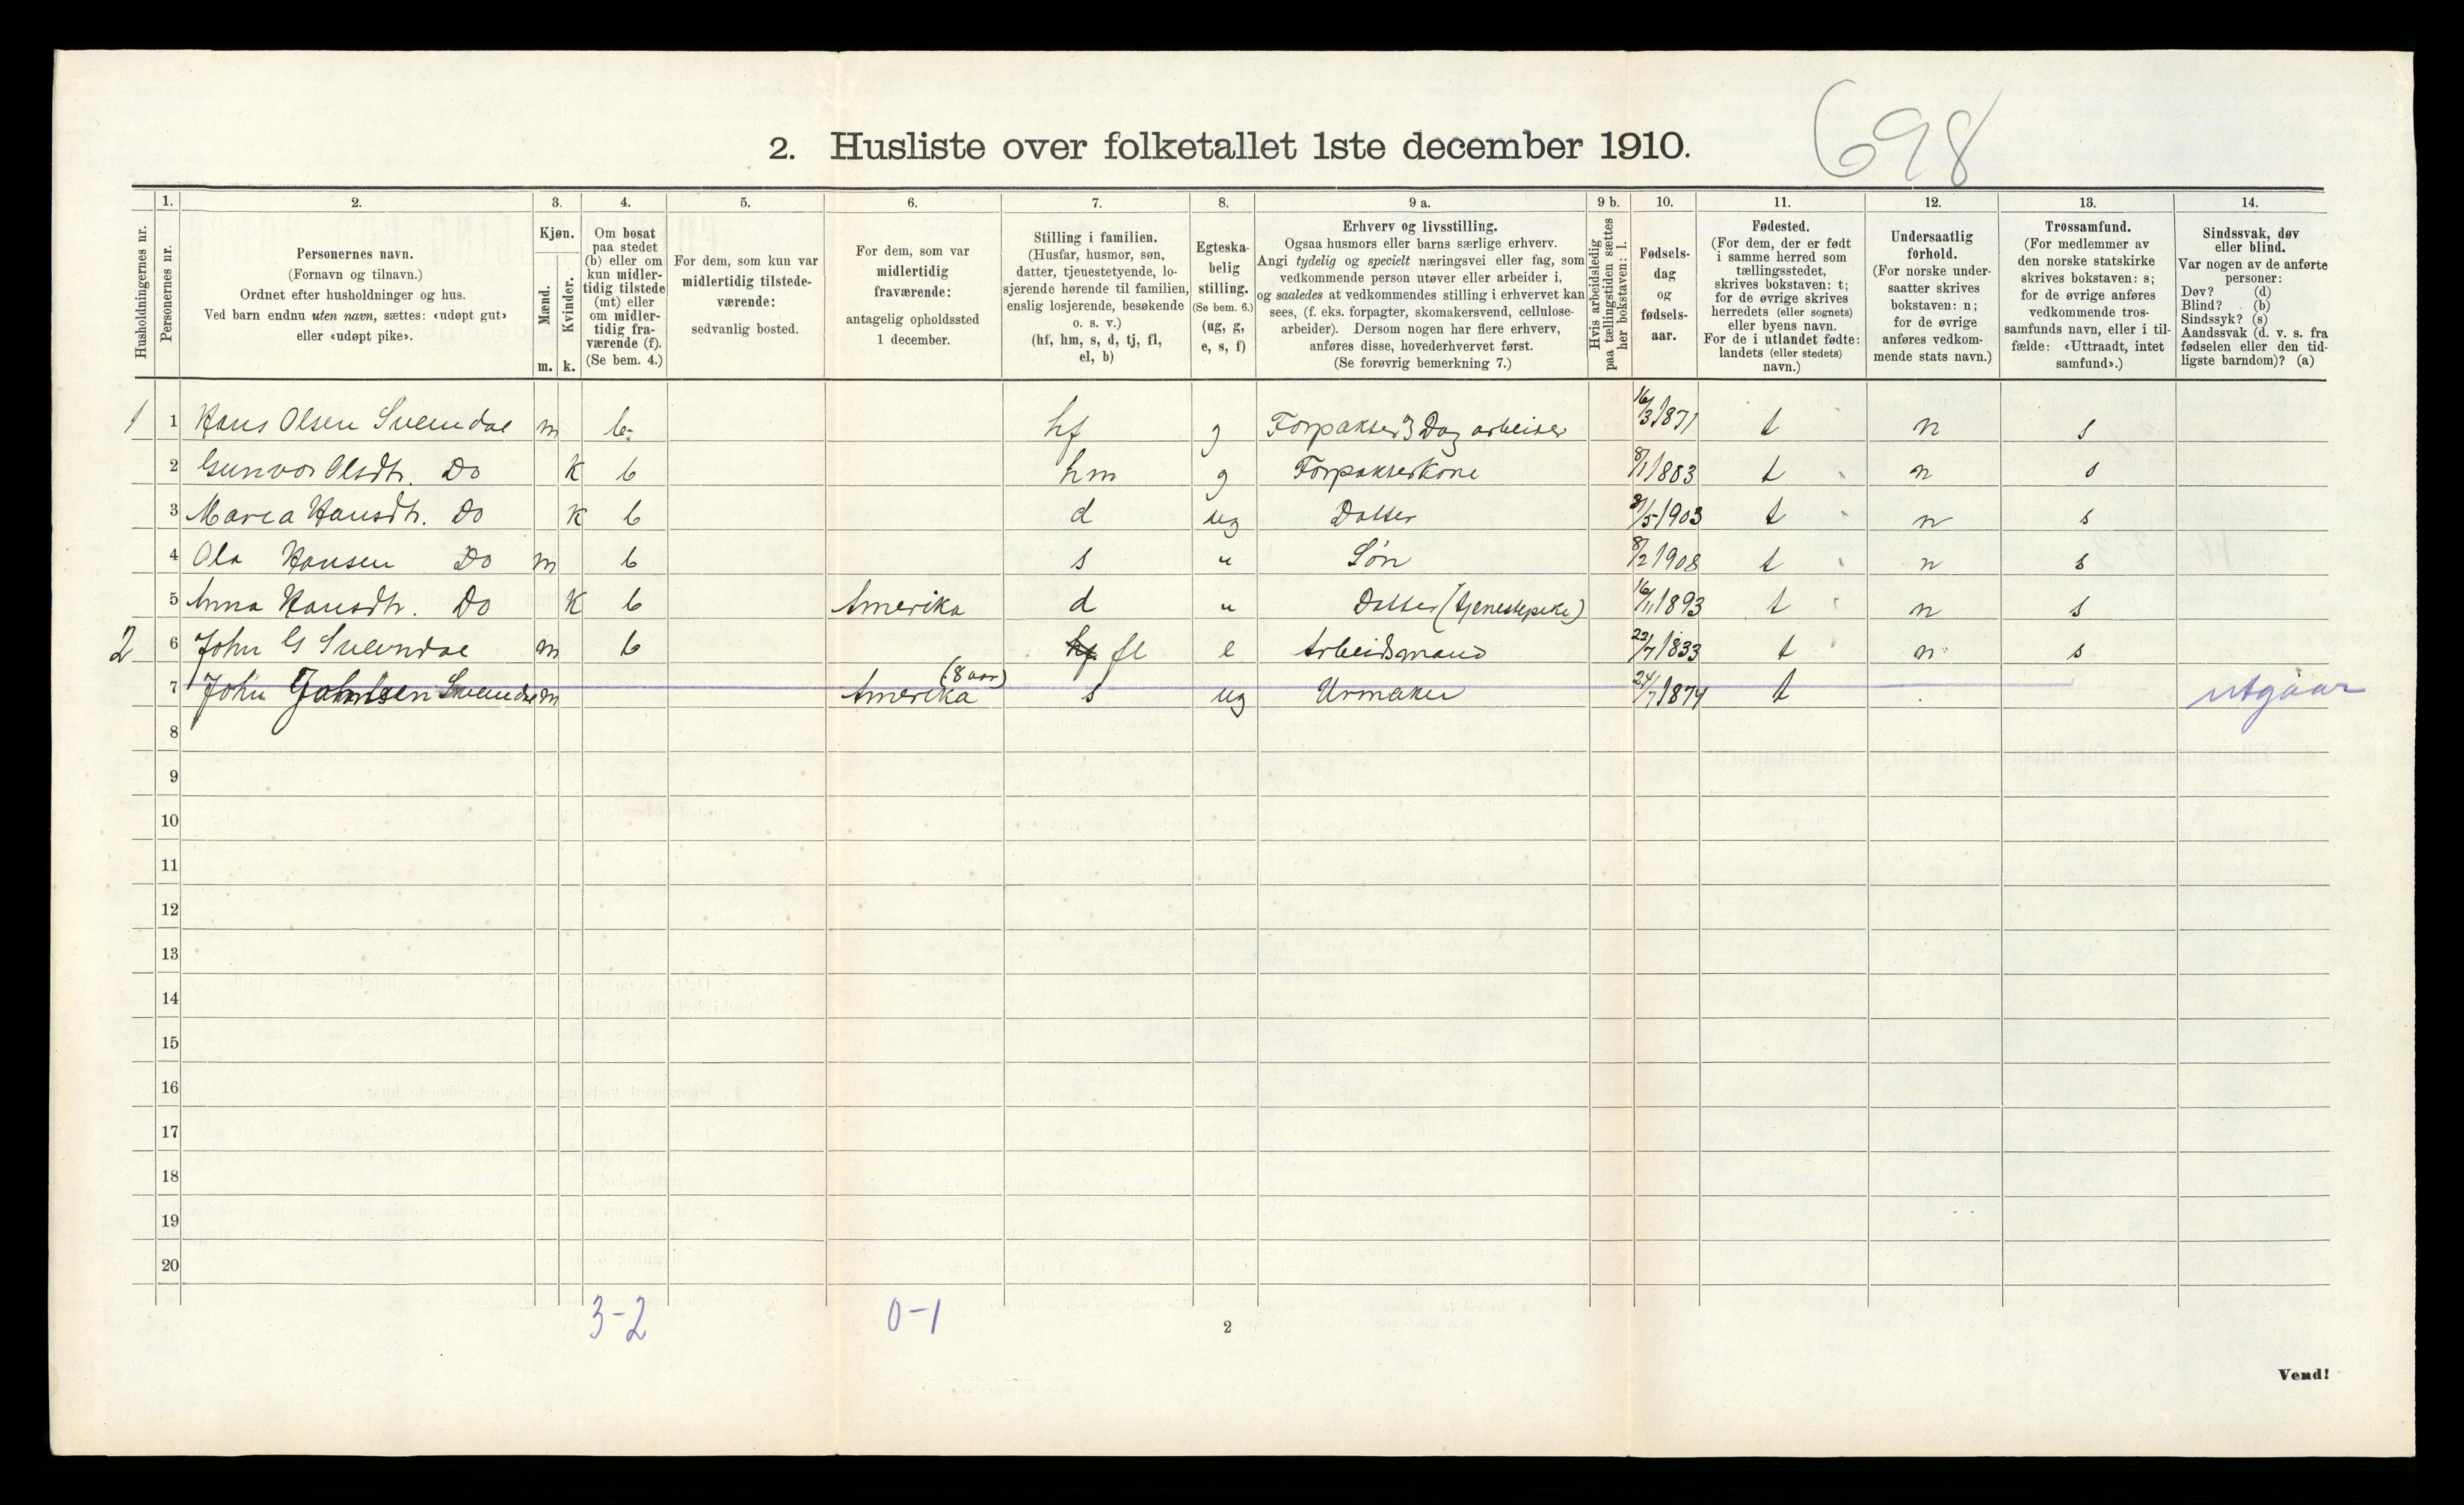 698
2. Husliste over folketallet 1ste december 1910.
Husholdningernes nr.
Personernes nr.
1. 2. 3. 4. 5. 6. 7. 8. 9 a. 9 b. 10. 11. 12. 13. 14.
Personernes navn.
(Fornavn og tilnavn.)
Ordnet efter husholdninger og hus.
Ved barn endnu uten navn, sættes: «udøpt gut»
eller «udøpt pike».
Kjøn.
Mænd.
Kvinder.
m. k.
Om bosat
paa stedet
(b) eller om
kun midler-
tidig tilstede
(mt) eller
om midler-
tidig fra-
værende (f).
(Se bem. 4.)
For dem, som kun var
midlertidig tilstede-
værende:
sedvanlig bosted.
For dem, som var
midlertidig
fraværende:
antagelig opholdssted
1 december.
Stilling i familien.
(Husfar, husmor, søn,
datter, tjenestetyende, lo-
sjerende hørende til familien,
enslig losjerende, besøkende
o. s. v.)
(hf, hm, s, d, tj, fl,
el, b)
Egteska-
belig
stilling.
(Se bem. 6.)
(ug, g,
e, s, f)
Erhverv og livsstilling.
Ogsaa husmors eller barns særlige erhverv.
Angi tydelig og specielt næringsvei eller fag, som
vedkommende person utøver eller arbeider i,
og saaledes at vedkommendes stilling i erhvervet kan
sees, (f. eks. forpagter, skomakersvend, cellulose-
arbeider). Dersom nogen har flere erhverv,
anføres disse, hovederhvervet først.
(Se forøvrig bemerkning 7.)
Hvis arbeidsledig
paa tællingstiden sættes
her bokstaven: l.
Fødsels-
dag
og
fødsels-
aar.
Fødested.
(For dem, der er født
i samme herred som
tællingsstedet,
skrives bokstaven: t;
for de øvrige skrives
herredets (eller sognets)
eller byens navn.
For de i utlandet fødte:
landets (eller stedets)
navn.)
Undersaatlig
forhold.
(For norske under-
saatter skrives
bokstaven: n;
for de øvrige
anføres vedkom-
mende stats navn.)
Trossamfund.
(For medlemmer av
den norske statskirke
skrives bokstaven: s;
for de øvrige anføres
vedkommende tros-
samfunds navn, eller i til-
fælde: «Uttraadt, intet
samfund».)
Sindssvak, døv
eller blind.
Var nogen av de anførte
personer:
Døv? (d)
Blind? (b)
Sindssyk? (s)
Aandssvak (d. v. s. fra
fødselen eller den tid-
ligste barndom)? (a)
1 1 Hans Olsen Sveindal m b hf g Forpakter & Dagarbeider 16/3 1871 t n s
2 Gunvor Olsdtr. Do K b hm g Forpakterkone 8/1 1883 t n s
3 Marea Hansdtr. Do K b d ug Datter /5 1903 t n s
4 Ola Hansen Do m b s " Søn 8/2 1908 t n s
5 Anna Hansdtr. Do K b Amerika d " Datter (tjenestepike) 16/11 1893 t n s
2 6 John G Sveindal m b hf fl e Arbeidsmand 22/7 1833 t n s
7 John Johnsen Sveindal m Amerika (8 aar) s ug Urmaker 24/7 1874 t utgaar
8
9
10
11
12
13
14
15
16
17
18
19
20
3-2 0-1
2
Vend!